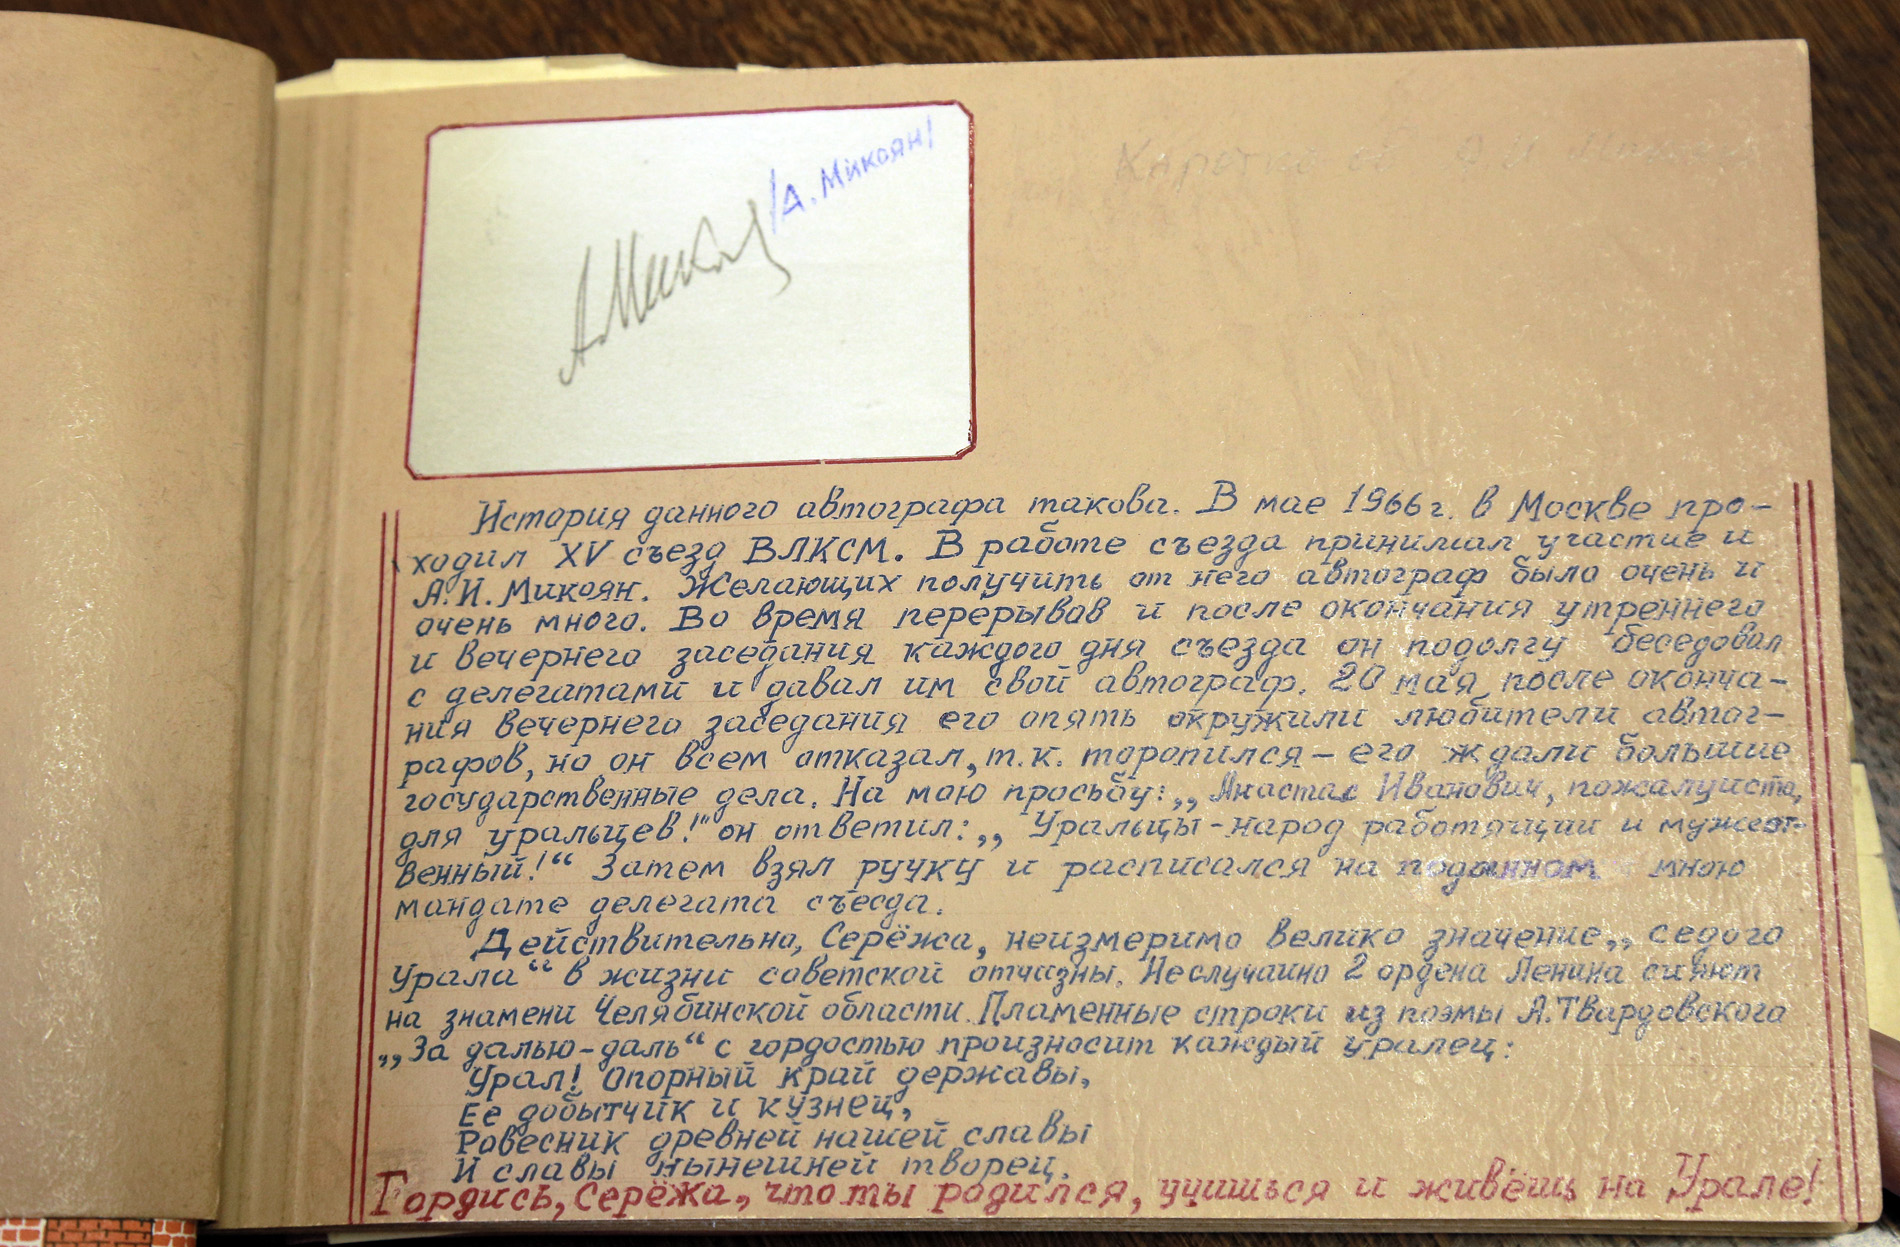 /А. Микоян/
А Микоян
История данного автографа такова. В мае 1966г. в Москве про-
ходил XV съезд ВЛКСМ. В работе съезда принимал участие и
А.И. Микоян. Желающих получить от него автограф было очень и
очень много. Во время перерывов и после окончания утреннего
и вечернего заседания каждого дня съезда он подолгу беседовал
с делегатами и давал им свой автограф. 20 мая, после оконча-
ния вечернего заседания его опять окружили любители автог-
рафов, но он всем отказал, т.к. торопился – его ждали большие
государственные дела. На мою просьбу: „Анастас Иванович, пожалуйста,
для уральцев!" он ответил: „Уральцы - народ работящий и мужест-
венный!“ Затем взял ручку и расписался на поданном мною
мандате делегата съезда.
Действительно, Серёжа, неизмеримо велико значение „седого
Урала“ в жизни советской отчизны. Неслучайно 2 ордена Ленина сияют
на знамени Челябинской области. Пламенные строки из поэмы А. Твардовского
„За далью – даль“ с гордостью произносит каждый уралец:
Урал! Опорный край державы,
Ее добытчик и кузнец,
Ровесник древней нашей славы
И славы нынешней творец.
Гордись, Серёжа, что ты родился, учишься и живёшь на Урале!